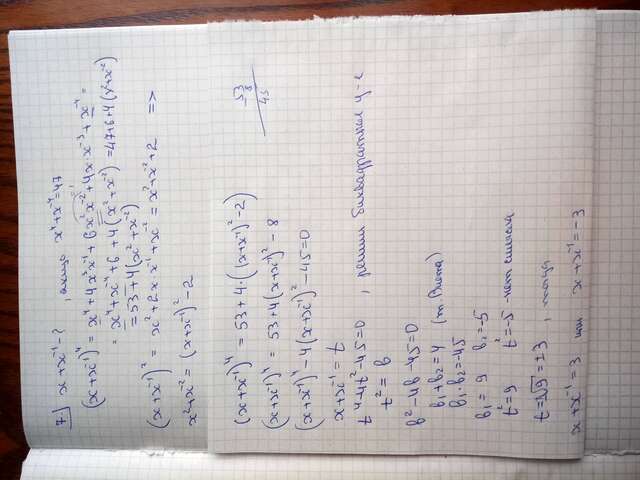 7.) x + x⁻¹ - ? , якщо x⁴ + x⁻⁴ = 47
(x + x⁻¹)⁴ = x⁴ + 4x³x⁻¹ + 6x²x⁻² + 4x·x⁻³ + x⁻⁴ =
= x⁴ + x⁻⁴ + 6 + 4(x² + x⁻²) = 47 + 6 + 4(x² + x⁻²)
= 53 + 4(x² + x⁻²)
(x + x⁻¹)² = x² + 2x·x⁻¹ + x⁻² = x² + x⁻² + 2 =>
x² + x⁻² = (x + x⁻¹)² - 2
(x + x⁻¹)⁴ = 53 + 4·((x + x⁻¹)² - 2)
53
- 8
45
(x + x⁻¹)⁴ = 53 + 4(x + x⁻¹)² - 8
(x + x⁻¹)⁴ - 4(x + x⁻¹)² - 45 = 0
x + x⁻¹ = t
t⁴ - 4t² - 45 = 0 , решим биквадратное у-е
t² = в
в² - 4в - 45 = 0
в₁ + в₂ = 4 (т. Виета)
в₁·в₂ = -45
в₁ = 9 в₂ = -5
t² = 9 t² = -5 - нет смысла
t = ±√9 = ±3 , тогда
x + x⁻¹ = 3 или x + x⁻¹ = -3